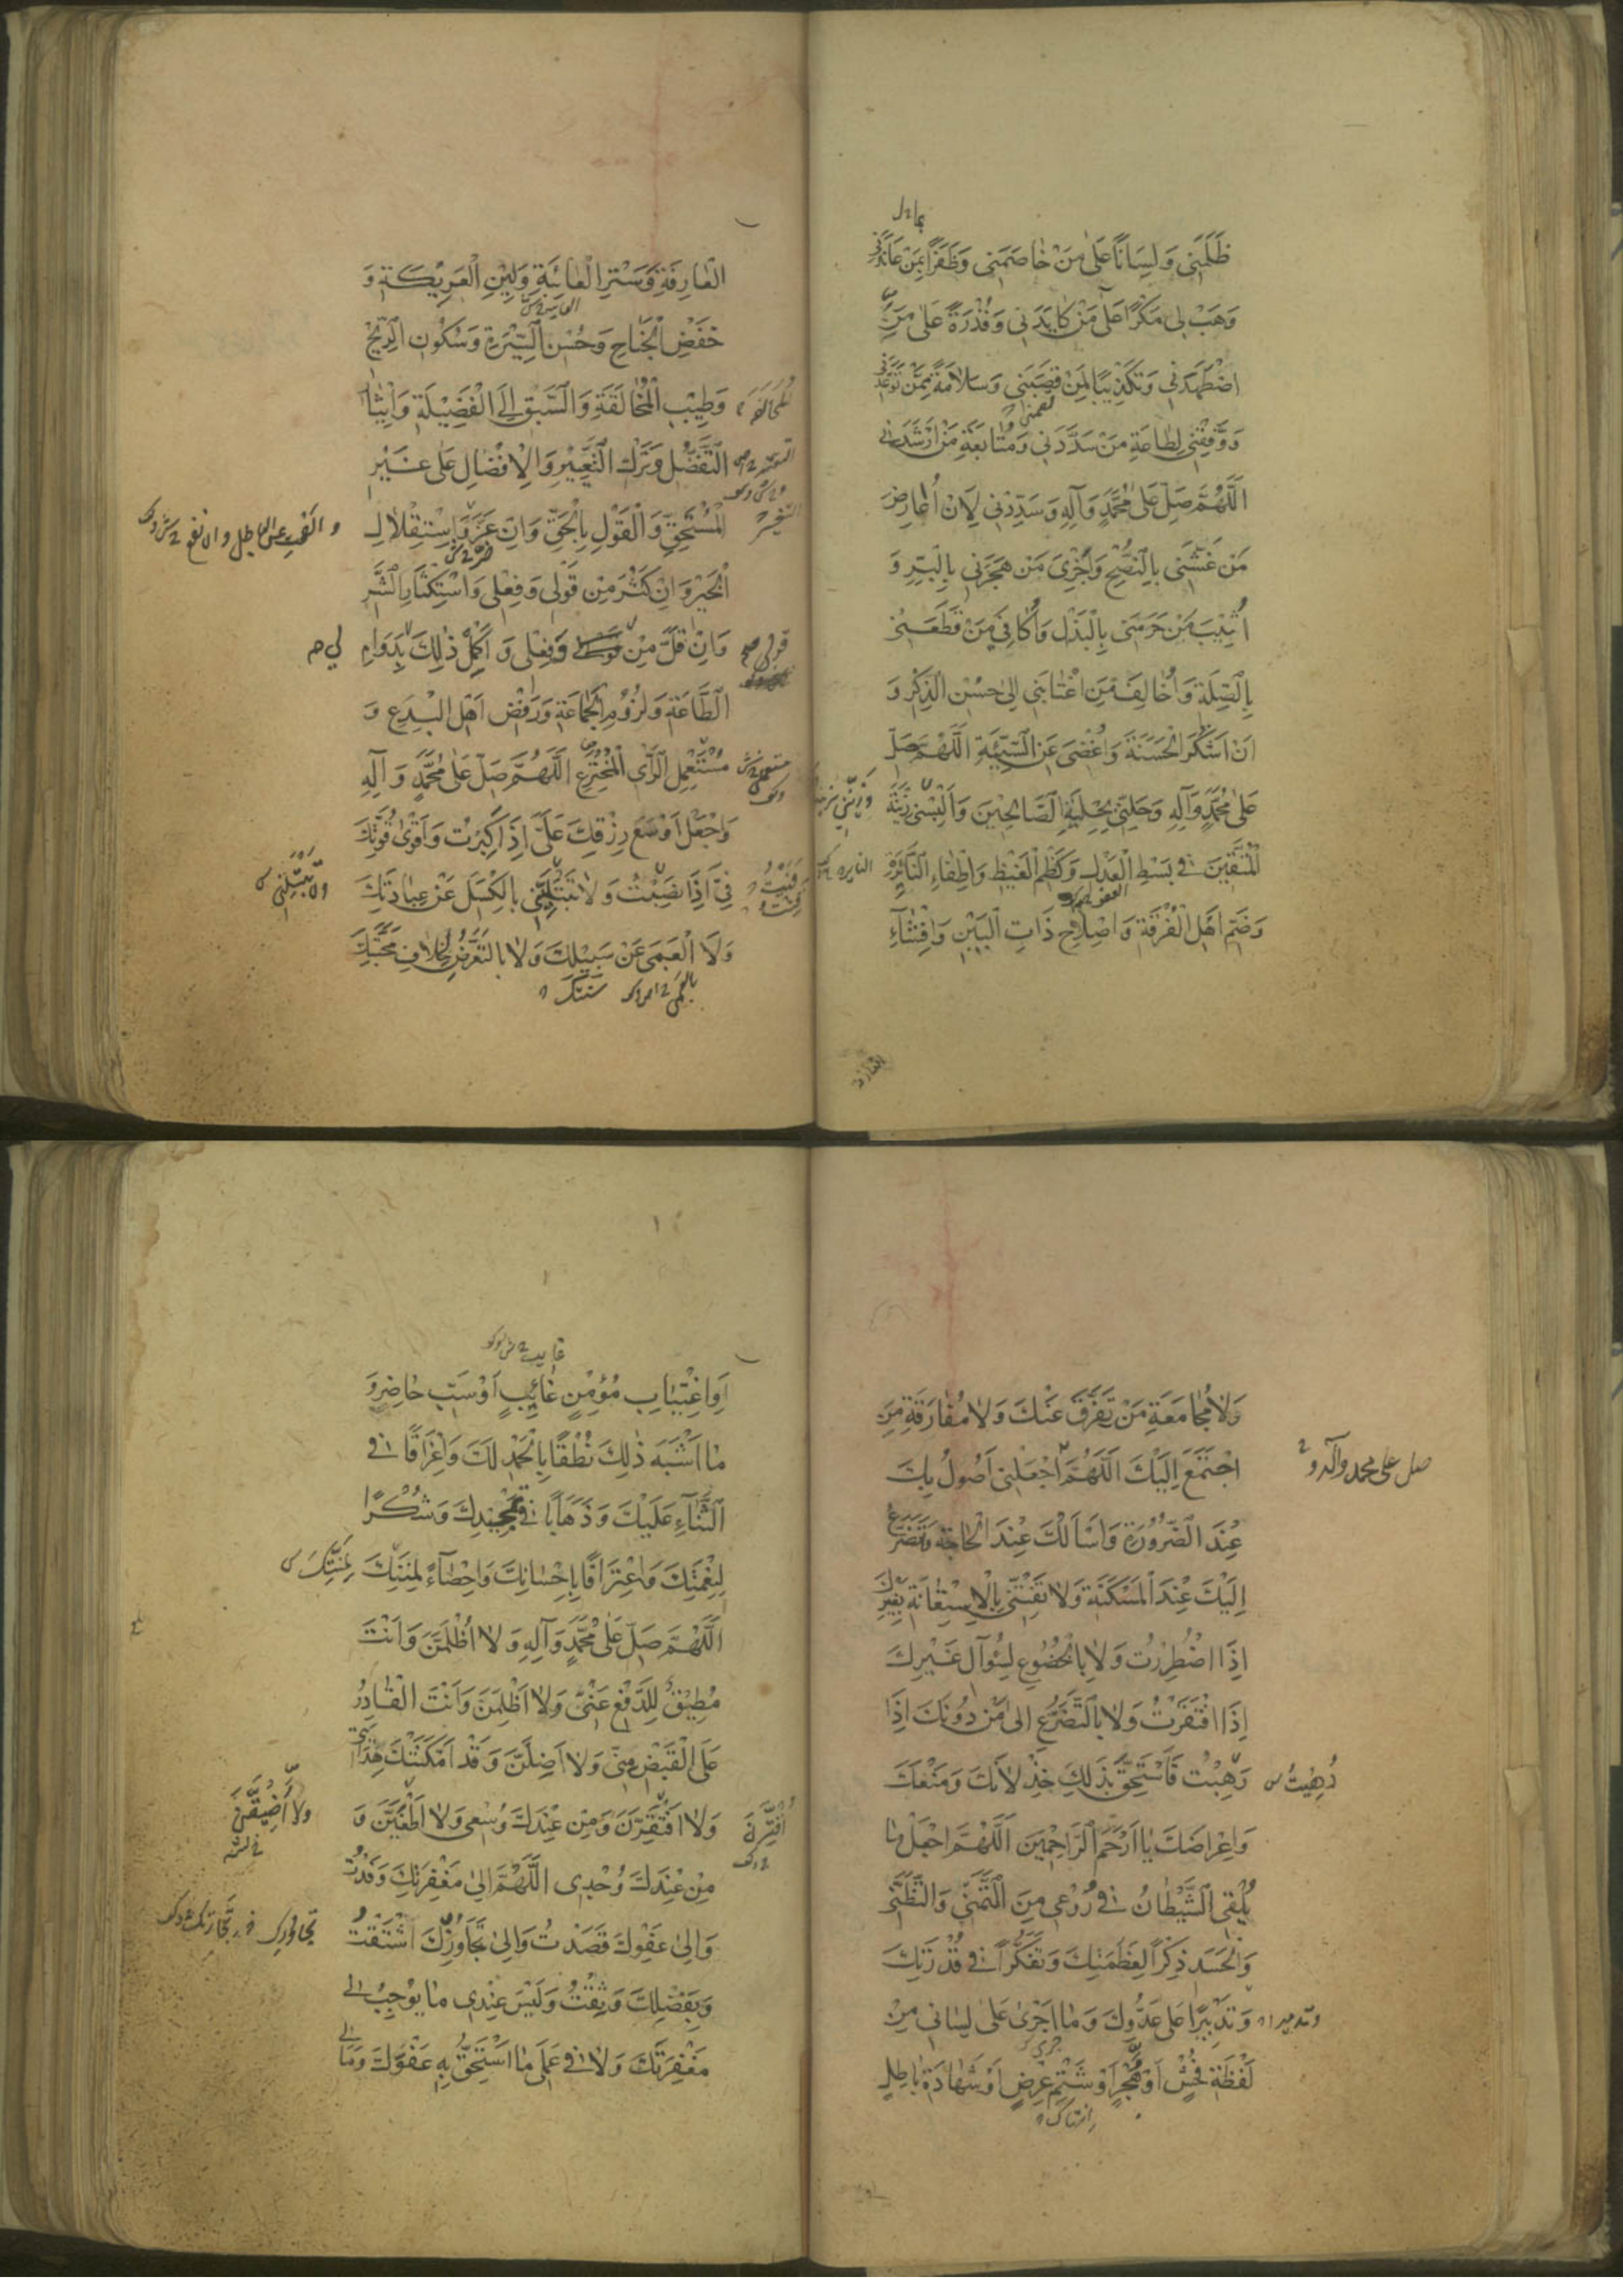 ظَلَمَنِي وَلِسَانًا عَلَى مَنْ خَاصَمَنِي وَظَفَرًا بِمَنْ عَانَدَنِي
وَهَبْ لِي مَكْرًا عَلَى مَنْ كَايَدَنِي وَقُدْرَةً عَلَى مَنِ
اضْطَهَدَنِي وَتَكْذِيبًا لِمَنْ قَصَبَنِي وَسَلَامَةً مِمَّنْ تَوَعَّدَنِي
وَوَفِّقْنِي لِطَاعَةِ مَنْ سَدَّدَنِي وَمُتَابَعَةِ مَنْ أَرْشَدَنِي
اَللّٰهُمَّ صَلِّ عَلَى مُحَمَّدٍ وَآلِهِ وَسَدِّدْنِي لِاَنْ أُعَارِضَ
مَنْ غَشَّنِي بِالنُّصْحِ وَأَجْزِيَ مَنْ هَجَرَنِي بِالْبِرِّ وَ
أُثِيبَ مَنْ حَرَمَنِي بِالْبَذْلِ وَأُكَافِيَ مَنْ قَطَعَنِي
بِالصِّلَةِ وَأُخَالِفَ مَنِ اغْتَابَنِي اِلَى حُسْنِ الذِّكْرِ وَ
اَنْ اَشْكُرَ الْحَسَنَةَ وَأُغْضِيَ عَنِ السَّيِّئَةِ اَللّٰهُمَّ صَلِّ
عَلَى مُحَمَّدٍ وَآلِهِ وَحَلِّنِي بِحِلْيَةِ الصَّالِحِينَ وَأَلْبِسْنِي زِينَةَ
الْمُتَّقِينَ فِي بَسْطِ الْعَدْلِ وَكَظْمِ الْغَيْظِ وَاِطْفَاءِ النَّائِرَةِ
النايره
وَضَمِّ اَهْلِ الْفُرْقَةِ وَاِصْلَاحِ ذَاتِ الْبَيْنِ وَاِفْشَاءِ
العارفة
الْعَارِفَةِ وَسَتْرِ الْعَائِبَةِ وَلِينِ الْعَرِيكَةِ وَ
خَفْضِ الْجَنَاحِ وَحُسْنِ السِّيرَةِ وَسُكُونِ الرِّيحِ
وَطِيبِ الْمُخَالَقَةِ وَالسَّبْقِ اِلَى الْفَضِيلَةِ وَاِيثَارِ
التَّفَضُّلِ وَتَرْكِ التَّعْيِيرِ وَالْاِفْضَالِ عَلَى غَيْرِ
الْمُسْتَحِقِّ وَالْقَوْلِ بِالْحَقِّ وَاِنْ عَزَّ وَاسْتِقْلَالِ
الْخَيْرِ وَاِنْ كَثُرَ مِنْ قَوْلِي وَفِعْلِي وَاسْتِكْثَارِ الشَّرِّ
وَاِنْ قَلَّ مِنْ وَفِعْلِي وَ اَكْمِلْ ذٰلِكَ بِدَوَامِ
قولي صح
لي
الطَّاعَةِ وَلُزُومِ الْجَمَاعَةِ وَرَفْضِ اَهْلِ الْبِدَعِ وَ
مُسْتَعْمِلِ الرَّأْيِ الْمُخْتَرَعِ اَللّٰهُمَّ صَلِّ عَلَى مُحَمَّدٍ وَ آلِهِ
وَاجْعَلْ اَوْسَعَ رِزْقِكَ عَلَيَّ اِذَا كَبِرْتُ وَاَقْوَى قُوَّتِكَ
فِيَّ اِذَا نَصِبْتُ وَلَا تَبْتَلِيَنِّي بِالْكَسَلِ عَنْ عِبَادَتِكَ
وَلَا الْعَمَى عَنْ سَبِيلِكَ وَلَا بِالتَّعَرُّضِ لِخِلَافِ مَحَبَّتِكَ
وَلَا مُجَامَعَةِ مَنْ تَفَرَّقَ عَنْكَ وَلَا مُفَارَقَةِ مَنِ
اجْتَمَعَ اِلَيْكَ اَللّٰهُمَّ اجْعَلْنِي اَصُولُ بِكَ
صل على محمد وآله و
عِنْدَ الضَّرُورَةِ وَاَسْأَلُكَ عِنْدَ الْحَاجَةِ وَتَضَرَّعُ
اِلَيْكَ عِنْدَ الْمَسْكَنَةِ وَلَا تَفْتِنِّي بِالْاِسْتِعَانَةِ بِغَيْرِكَ
اِذَا اضْطُرِرْتُ وَلَا بِالْخُضُوعِ لِسُؤَالِ غَيْرِكَ
اِذَا افْتَقَرْتُ وَلَا بِالتَّضَرُّعِ اِلَى مَنْ دُونَكَ اِذَا
رَهِبْتُ فَاَسْتَحِقَّ بِذَلِكَ خِذْلَانَكَ وَمَنْعَكَ
دُهِيتُ
وَاِعْرَاضَكَ يَا اَرْحَمَ الرَّاحِمِينَ اَللّٰهُمَّ اجْعَلْ مَا
يُلْقِي الشَّيْطَانُ فِي رُوعِي مِنَ التَّمَنِّي وَالتَّظَنِّي
وَالْحَسَدِ ذِكْرًا لِعَظَمَتِكَ وَتَفَكُّرًا فِي قُدْرَتِكَ
وَتَدْبِيرًا عَلَى عَدُوِّكَ وَمَا اَجْرَى عَلَى لِسَانِي مِنْ
وتدميرا
لَفْظَةِ فُحْشٍ اَوْ هُجْرٍ اَوْ شَتْمِ عِرْضٍ اَوْ شَهَادَةِ بَاطِلٍ
اَوِ اغْتِيَابِ مُؤْمِنٍ غَائِبٍ اَوْ سَبِّ حَاضِرٍ وَ
مَا اَشْبَهَ ذٰلِكَ نُطْقًا بِالْحَمْدِ لَكَ وَاِغْرَاقًا فِي
الثَّنَاءِ عَلَيْكَ وَذَهَابًا فِي تَمْجِيدِكَ وَشُكْرًا
لِنِعْمَتِكَ وَاعْتِرَافًا بِاِحْسَانِكَ وَاِحْصَاءً لِمِنَنِكَ
لِمِنَّتِكَ
اَللّٰهُمَّ صَلِّ عَلَى مُحَمَّدٍ وَآلِهِ وَلَا اُظْلَمَنَّ وَاَنْتَ
مُطِيقٌ لِلدَّفْعِ عَنِّي وَلَا اَظْلِمَنَّ وَاَنْتَ الْقَادِرُ
عَلَى الْقَبْضِ مِنِّي وَلَا اَضِلَّنَّ وَقَدْ اَمْكَنَتْكَ هِدَايَتِي
وَلَا اَفْتَقِرَنَّ وَمِنْ عِنْدِكَ وُسْعِي وَلَا اَطْغَيَنَّ وَ
مِنْ عِنْدِكَ وُجْدِي اَللّٰهُمَّ اِلَى مَغْفِرَتِكَ وَفَدْتُ
وَاِلَى عَفْوِكَ قَصَدْتُ وَاِلَى تَجَاوُزِكَ اشْتَقْتُ
وَبِفَضْلِكَ وَثِقْتُ وَلَيْسَ عِنْدِي مَا يُوجِبُ لِي
مَغْفِرَتَكَ وَلَا فِي عَمَلِي مَا اَسْتَحِقُّ بِهِ عَفْوَكَ وَمَا لِي